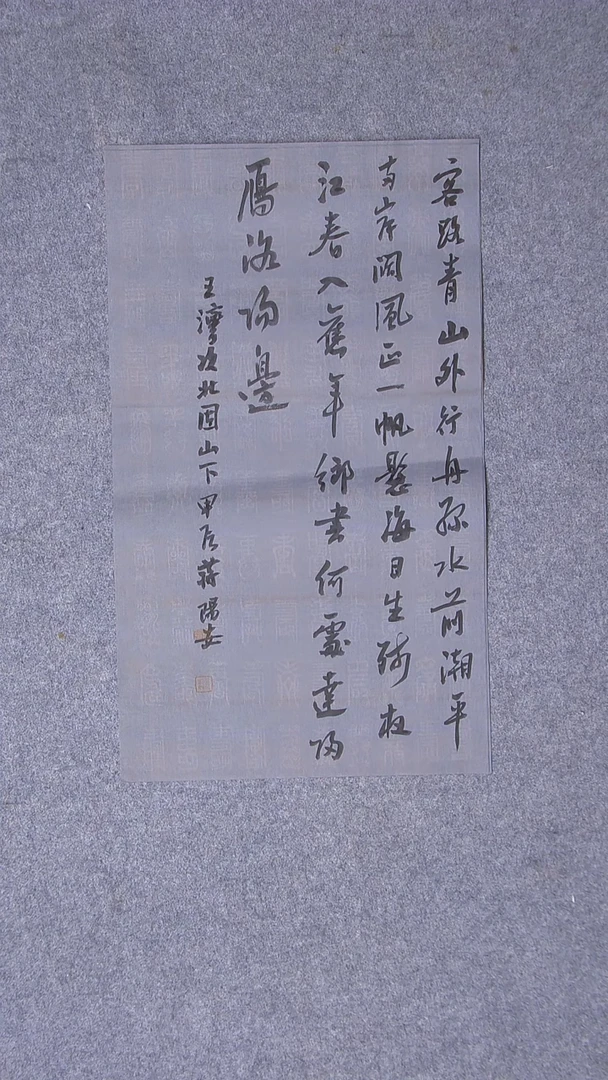 客路青山外行舟綠水前潮平
兩岸闊風正一帆懸海日生殘夜
江春入舊年鄉書何處達歸
鴈洛陽邊
王灣次北固山下甲辰蔣